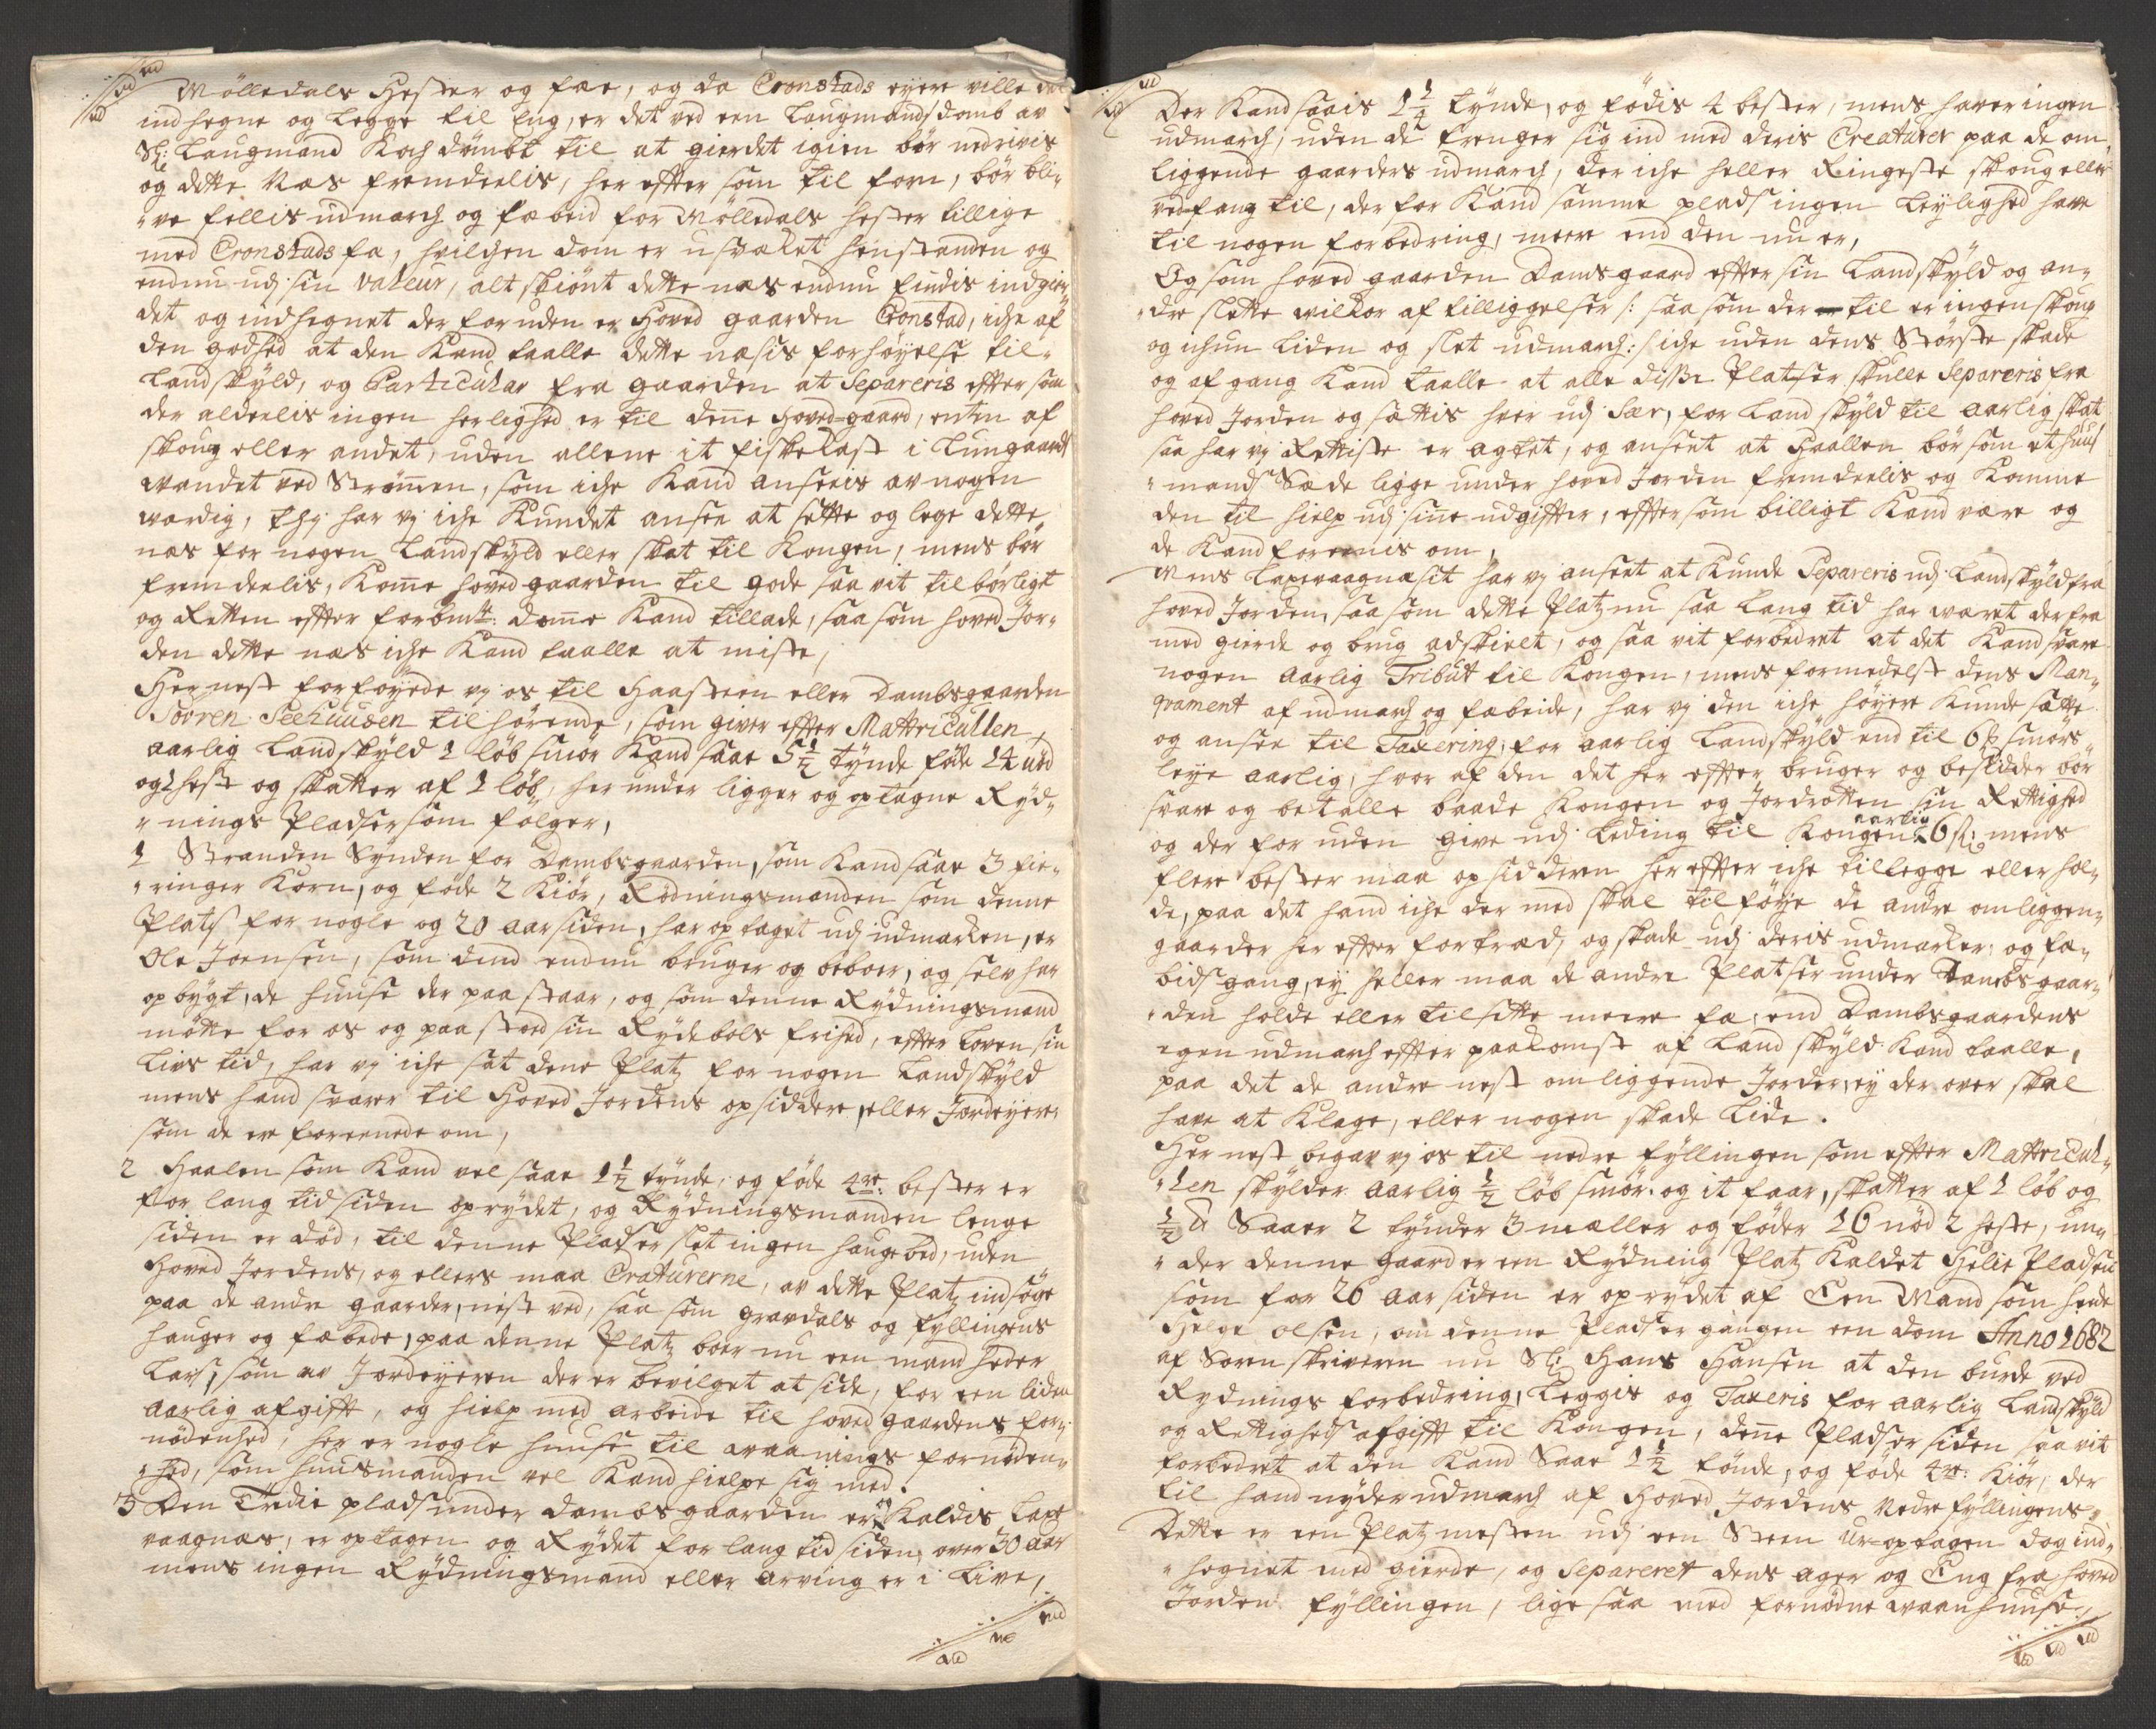 Mölledals Hester og fæe, og da Cronstads eyere ville det
indhegne og legge til Eng, er det ved een Laugmands domb av
Sl: Laugmand Koch dömbt til at gierdet igien bör nedrivis
og dette Næs fremdeelis, her effter som til forn, bör bli-
ve fellis udmarch og fæbeid for Mölledals hester tillige
med Cronstads fæ, hvilchen dom er usvæket henstanden og
endnu udj sin valeur, alt skiönt dette næs endnu findis indgier-
det og indhegnet der foruden er Hoved gaarden Cronstad, iche af
den godhed at den Kand taalle dette næsis forhöyelse til
Landskyld, og Particular fra gaarden at Separeris effter som
der alderlis ingen herlighed er til denne Hoved-gaard, enten af
skoug eller andet, uden allene it fiskekast i Lungaards
wandet ved Strömmen, som iche Kand ansees av nogen
wærdig, thj har vj iche Kundet ansee at sette og lege dette
næs for nogen Landskyld eller skat til Kongen, mens bör
fremdeelis, Kome hoved gaarden til gode saa vit tilbörligt
og Retten effter forbmte: domme Kand tillade, saa som hoved Jor-
den dette næs iche Kand taalle at miste,
Hernest forföyede vj os til Haasteen eller Dambsgaarden
Sörren Seehuusen tilhörende, som giver effter Matricullen,
aarlig Landskyld 1 löb smör Kand saae 5½ tynde föde 14 nöd
og 1 hest og skatter af 1 löb, her under ligger og optagne Ryd-
nings Pladser som fölger,
1 Stranden Synden for Dambsgaarden, som Kand saae 3 fie-
ringer Korn, og föde 2 Kiör, Rödningsmanden som denne
Plats for nogle og 20 aar siden, har optaget udj udmarken, er
Ole Joensen, som dend endnu bruger og beboer, og selv har
opbygt, de huuse der paa staar, og som denne Rydningsmand
mötte for os og paastoed sin Rydebols frihed, effter Loven sin
Livs tid, har vj iche sat denne Platz for nogen Landskyld
mens hand svarer til Hoved Jordens opsiddere, eller Jordeyere
som de ere foreenede om,
2 Haalen som Kand vel saae 1½ tynde, og föde 4re: bester er
for lang tid siden oprydet, og Rydningsmanden lenge
siden er död, til denne Plads er slet ingen hauge bed, uden
Hoved Jordens, og ellers maa Craturerne, av dette Platz indsöge
paa de andre gaarder, nest ved, saa som gravdals og fyllingens
hauger og fæbede, paa denne Platz boer nu een mand heder
Lars, som av Jordeyeren der er bevilget at side, for een liden
aarlig afgifft, og hielp med arbeide til hoved gaardens for-
nödenhed, her er nogle huuse til waanings fornöden-
hed, som huusmanden vel Kand hielpe sig med.
3 Den Tredie plads under Dambsgaarden er og Kaldis Laxe
vaagnæs, er optagen og Rydet for lang tid siden, over 30 aar
mens ingen Rydningsmand eller arving er i Live,
Der Kand saais 1¼ tynde, og födis 4 bester, mens haver ingen
udmarch, uden de trenger sig ind med deris Creaturer paa de om
liggende gaarders udmarch, der iche heller Ringeste skoug eller
vedfang til, der for Kand samme plads ingen Leylighed have
til nogen forbedring, meere end den nu er,
Og som hoved gaarden Damsgaard effter sin Landskyld og an-
dre slette wilkor af tilliggelser /: saa som der til er ingen skoug
og ichun liden og slet udmarch: / iche uden dens Störste skade
og af gang Kand taalle at alle disse Platser skulle Separeris fra
hoved Jorden og sættis hver udj sær, for Landskyld til aarlig skat
saa har vj Rettiste er agtet, og anseet at Haallen bör som et huus
mands Sæde ligge under hoved Jorden fremdeelis og Komme
den til hielp udj sine udgiffter, effter som billigt Kand være og
de Kand foreenis om,
Mens Laxevaagnæsit har vj anseet at Kunde Separeris udj Landskyld fra
hoved Jorden, saa som dette Platz nu saa lang tid har wæret der fra
med gierde og brug adskielt, og saa vit forbedret at det Kand svare
nogen aarlig Tribut til Kongen, mens formedelst dens Man-
qvament af udmarch og fæbeide, har vj den iche höyere Kunde sætte
og ansee til Taxering, for aarlig Landskyld end til 6 ß smörs
leye aarlig, hvor af den det her effter bruger og besidder bör
svare og betalle baade Kongen og Jordrotten sin Rettighed
og der for uden give udj Leding til Kongen aarlig 6 ß: mens
flere bester maa opsidderen her effter iche tillegge eller hol-
de, paa det hand iche der med skal tilföye de andre omliggen-
gaarder her effter fortræd, og skade udj deris udmarker, og fæ-
bids gang, ey heller maa de andre Platser under Dambsgaar-
den holde eller tilsette meere fæ, end Dambsgaardens
egen udmarch effter paakomst af Landskyld Kand taalle,
paa det de andre nest omliggende Jorder, ey der over skal
have at Klage, eller nogen skade Lide.
Hernest begav vj os til nedre fyllingen som effter Matricul-
len skylder aarlig ½ löb smör og it faar, skatter af 1 löb og
½ Saaer 2 tynder 3 mæller og föder 16 nöd 2 heste, un-
der denne Gaard er een Rydning Platz Kaldet Helle Pladsen
som for 26 aar siden er oprydet af Een Mand som hede
Helge olsen, om denne Plads er gangen een dom Anno 1682
af Sorenskriveren nu Sl: Hans Hansen at den burde ved
Rydnings forbedring, Leggis og Taxeris for aarlig Landskyld
og Rettigheds afgifft til Kongen, denne Plads er siden saavit
forbedret at den Kand Saae 1½ tönde, og föde 4re: Kiör, der
til hand nyder udmarch af Hoved Jordens Nedre fyllingens
Dette er een Platz mesten udj een Steen Ur-optagen dog ind-
hegnet med gierde, og Separeret dens ager og Eng fra hoved
Jorden fyllingen, lige saa med fornödne waanhuuse,